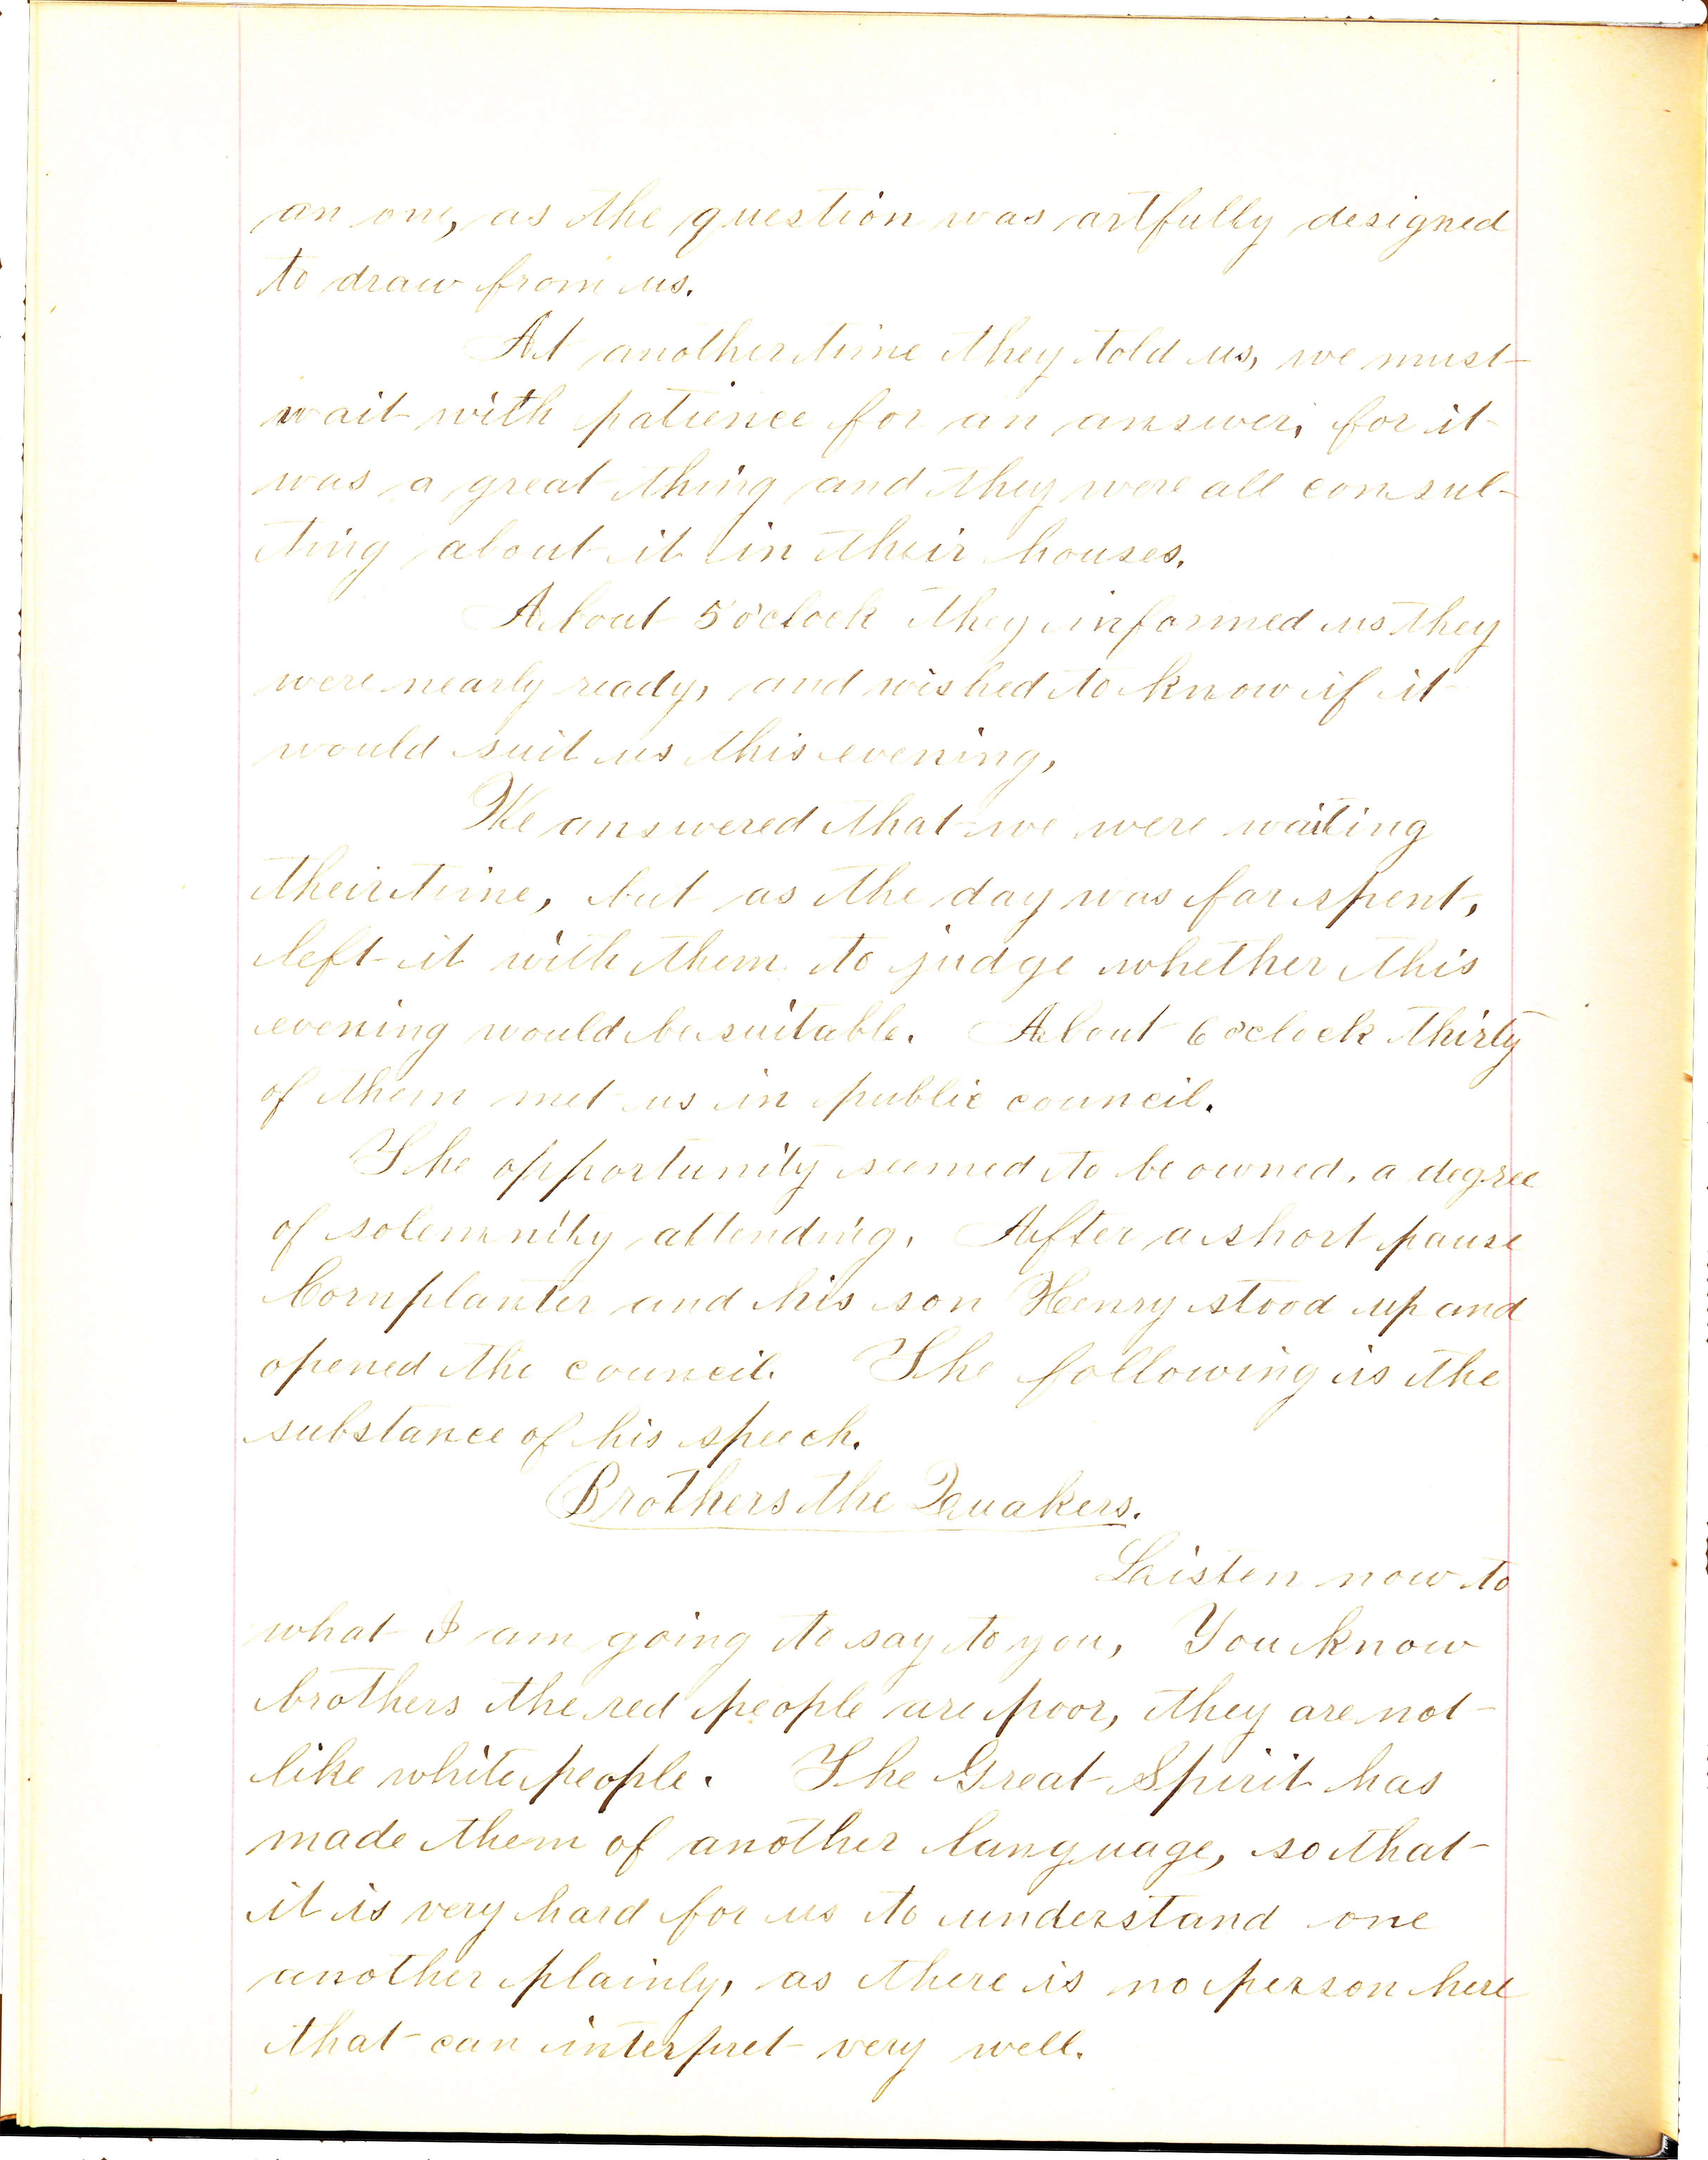 an one, as the question was artfully designed
to draw from us.
At another time they told us, we must
wait with patience for an answer, for it
was a great thing and they were all consul-
ting about it in their houses.
About 5 o'clock they informed us they
were nearly ready, and wished to know if it
would suit us this evening,
We answered that we were waiting
their time, but as the day was far spent,
left it with them to judge whether this
evening would be suitable. About 6 o'clock thirty
of them met us in public council.
The opportunity seemed to be owned, a degree
of solemnity attending. After a short pause
Cornplanter and his son Henry stood up and
opened the council. The following is the
substance of his speech.
Brothers the Quakers.
Listen now to
what I am going to say to you, You know
brothers the red people are poor, they are not
like white people. The Great Spirit has
made them of another language, so that
it is very hard for us to understand one
another plainly, as there is no person here
that can interpret very well.